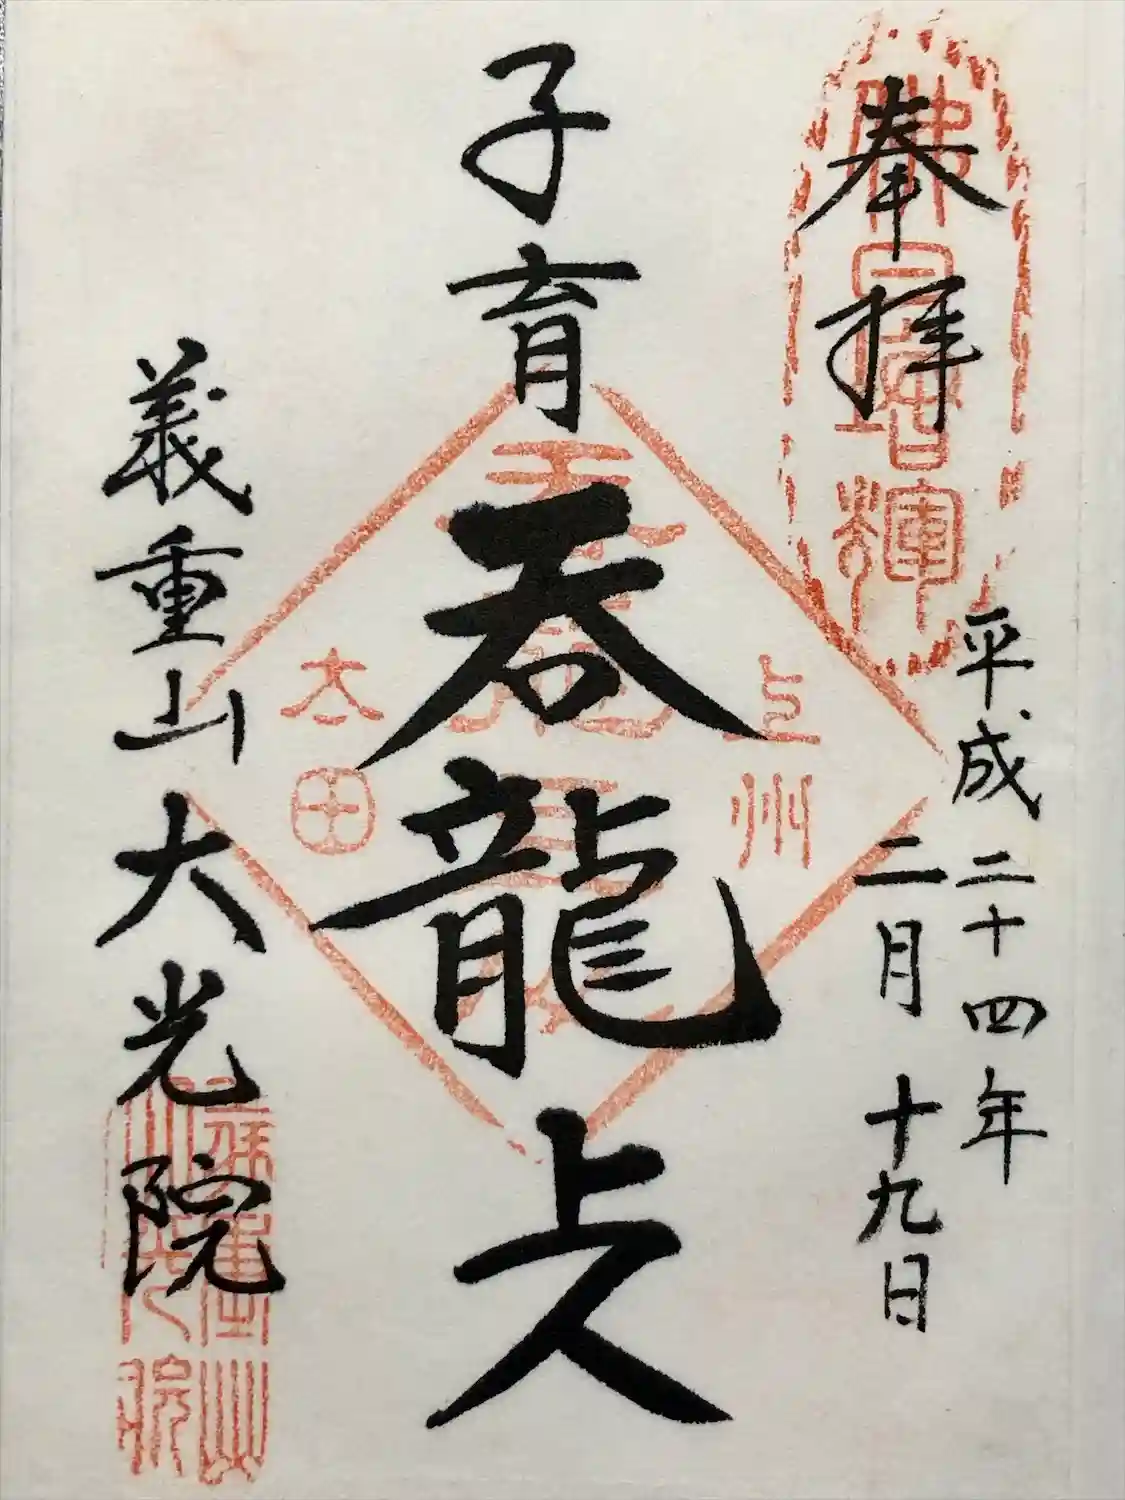 奉拝
平成二十四年
二月十九日
子育呑龍上人
上州
太田
義重山大光院
佛日増輝